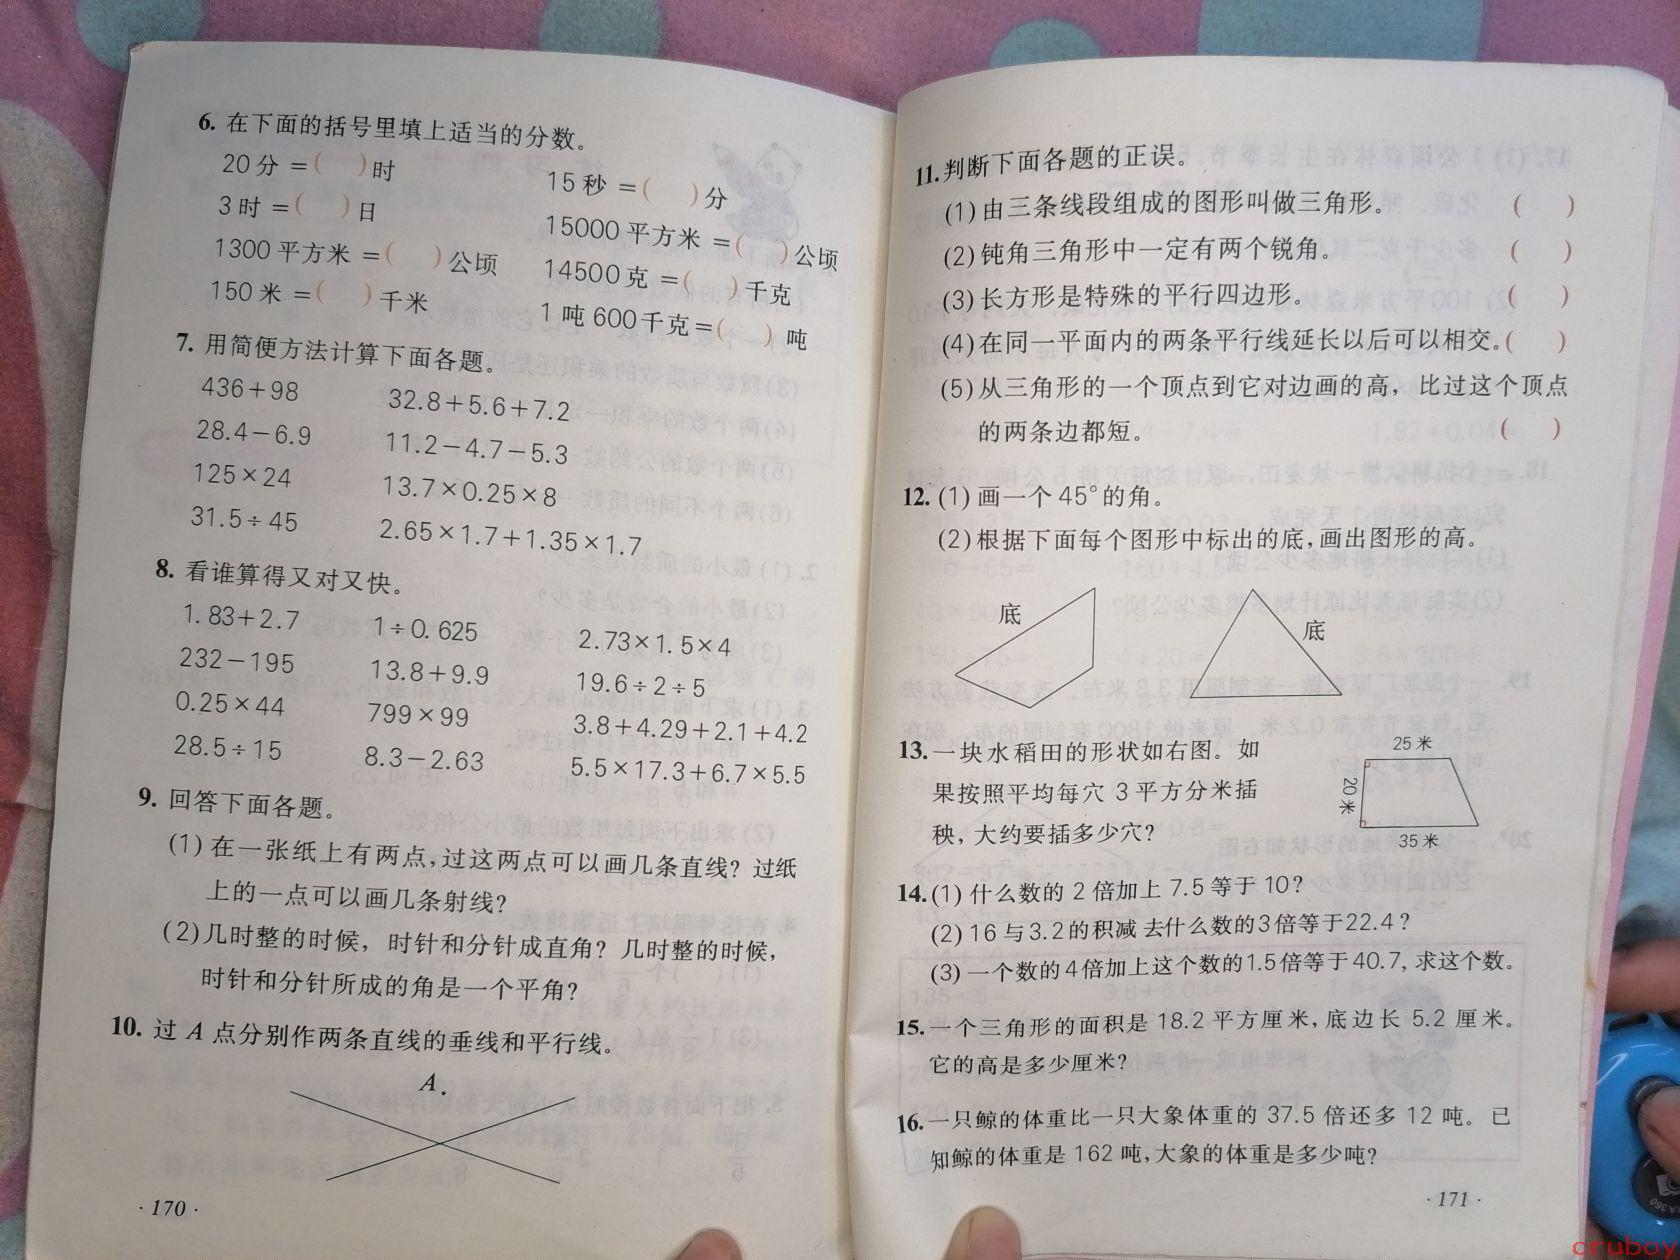 6. 在下面的括号里填上适当的分数。
20分 =(　)时　15秒 =(　)分
3时 =(　)日　15000平方米 =(　)公顷
1300平方米 =(　)公顷　14500克 =(　)千克
150米 =(　)千米　1吨600千克=(　)吨
7. 用简便方法计算下面各题。
436+98　32.8+5.6+7.2
28.4-6.9　11.2-4.7-5.3
125×24　13.7×0.25×8
31.5÷45　2.65×1.7+1.35×1.7
8. 看谁算得又对又快。
1.83+2.7　1÷0.625　2.73×1.5×4
232-195　13.8+9.9　19.6÷2÷5
0.25×44　799×99　3.8+4.29+2.1+4.2
28.5÷15　8.3-2.63　5.5×17.3+6.7×5.5
9. 回答下面各题。
(1)在一张纸上有两点,过这两点可以画几条直线? 过纸
上的一点可以画几条射线?
(2)几时整的时候, 时针和分针成直角? 几时整的时候,
时针和分针所成的角是一个平角?
10. 过 A 点分别作两条直线的垂线和平行线。
A .
· 170 ·
11.判断下面各题的正误。
(1)由三条线段组成的图形叫做三角形。(　)
(2)钝角三角形中一定有两个锐角。(　)
(3)长方形是特殊的平行四边形。(　)
(4)在同一平面内的两条平行线延长以后可以相交。(　)
(5)从三角形的一个顶点到它对边画的高, 比过这个顶点
的两条边都短。(　)
12. (1)画一个45°的角。
(2)根据下面每个图形中标出的底,画出图形的高。
底　底
13.一块水稻田的形状如右图。如
果按照平均每穴 3 平方分米插
秧,大约要插多少穴?
25米
20米
35米
14.(1)什么数的 2 倍加上 7.5等于10?
(2)16与3.2的积减去什么数的3倍等于22.4?
(3)一个数的4倍加上这个数的1.5倍等于40.7,求这个数。
15.一个三角形的面积是18.2平方厘米,底边长 5.2 厘米。
它的高是多少厘米?
16.一只鲸的体重比一只大象体重的 37.5 倍还多 12 吨。已
知鲸的体重是162吨,大象的体重是多少吨?
· 171 ·
cruboy